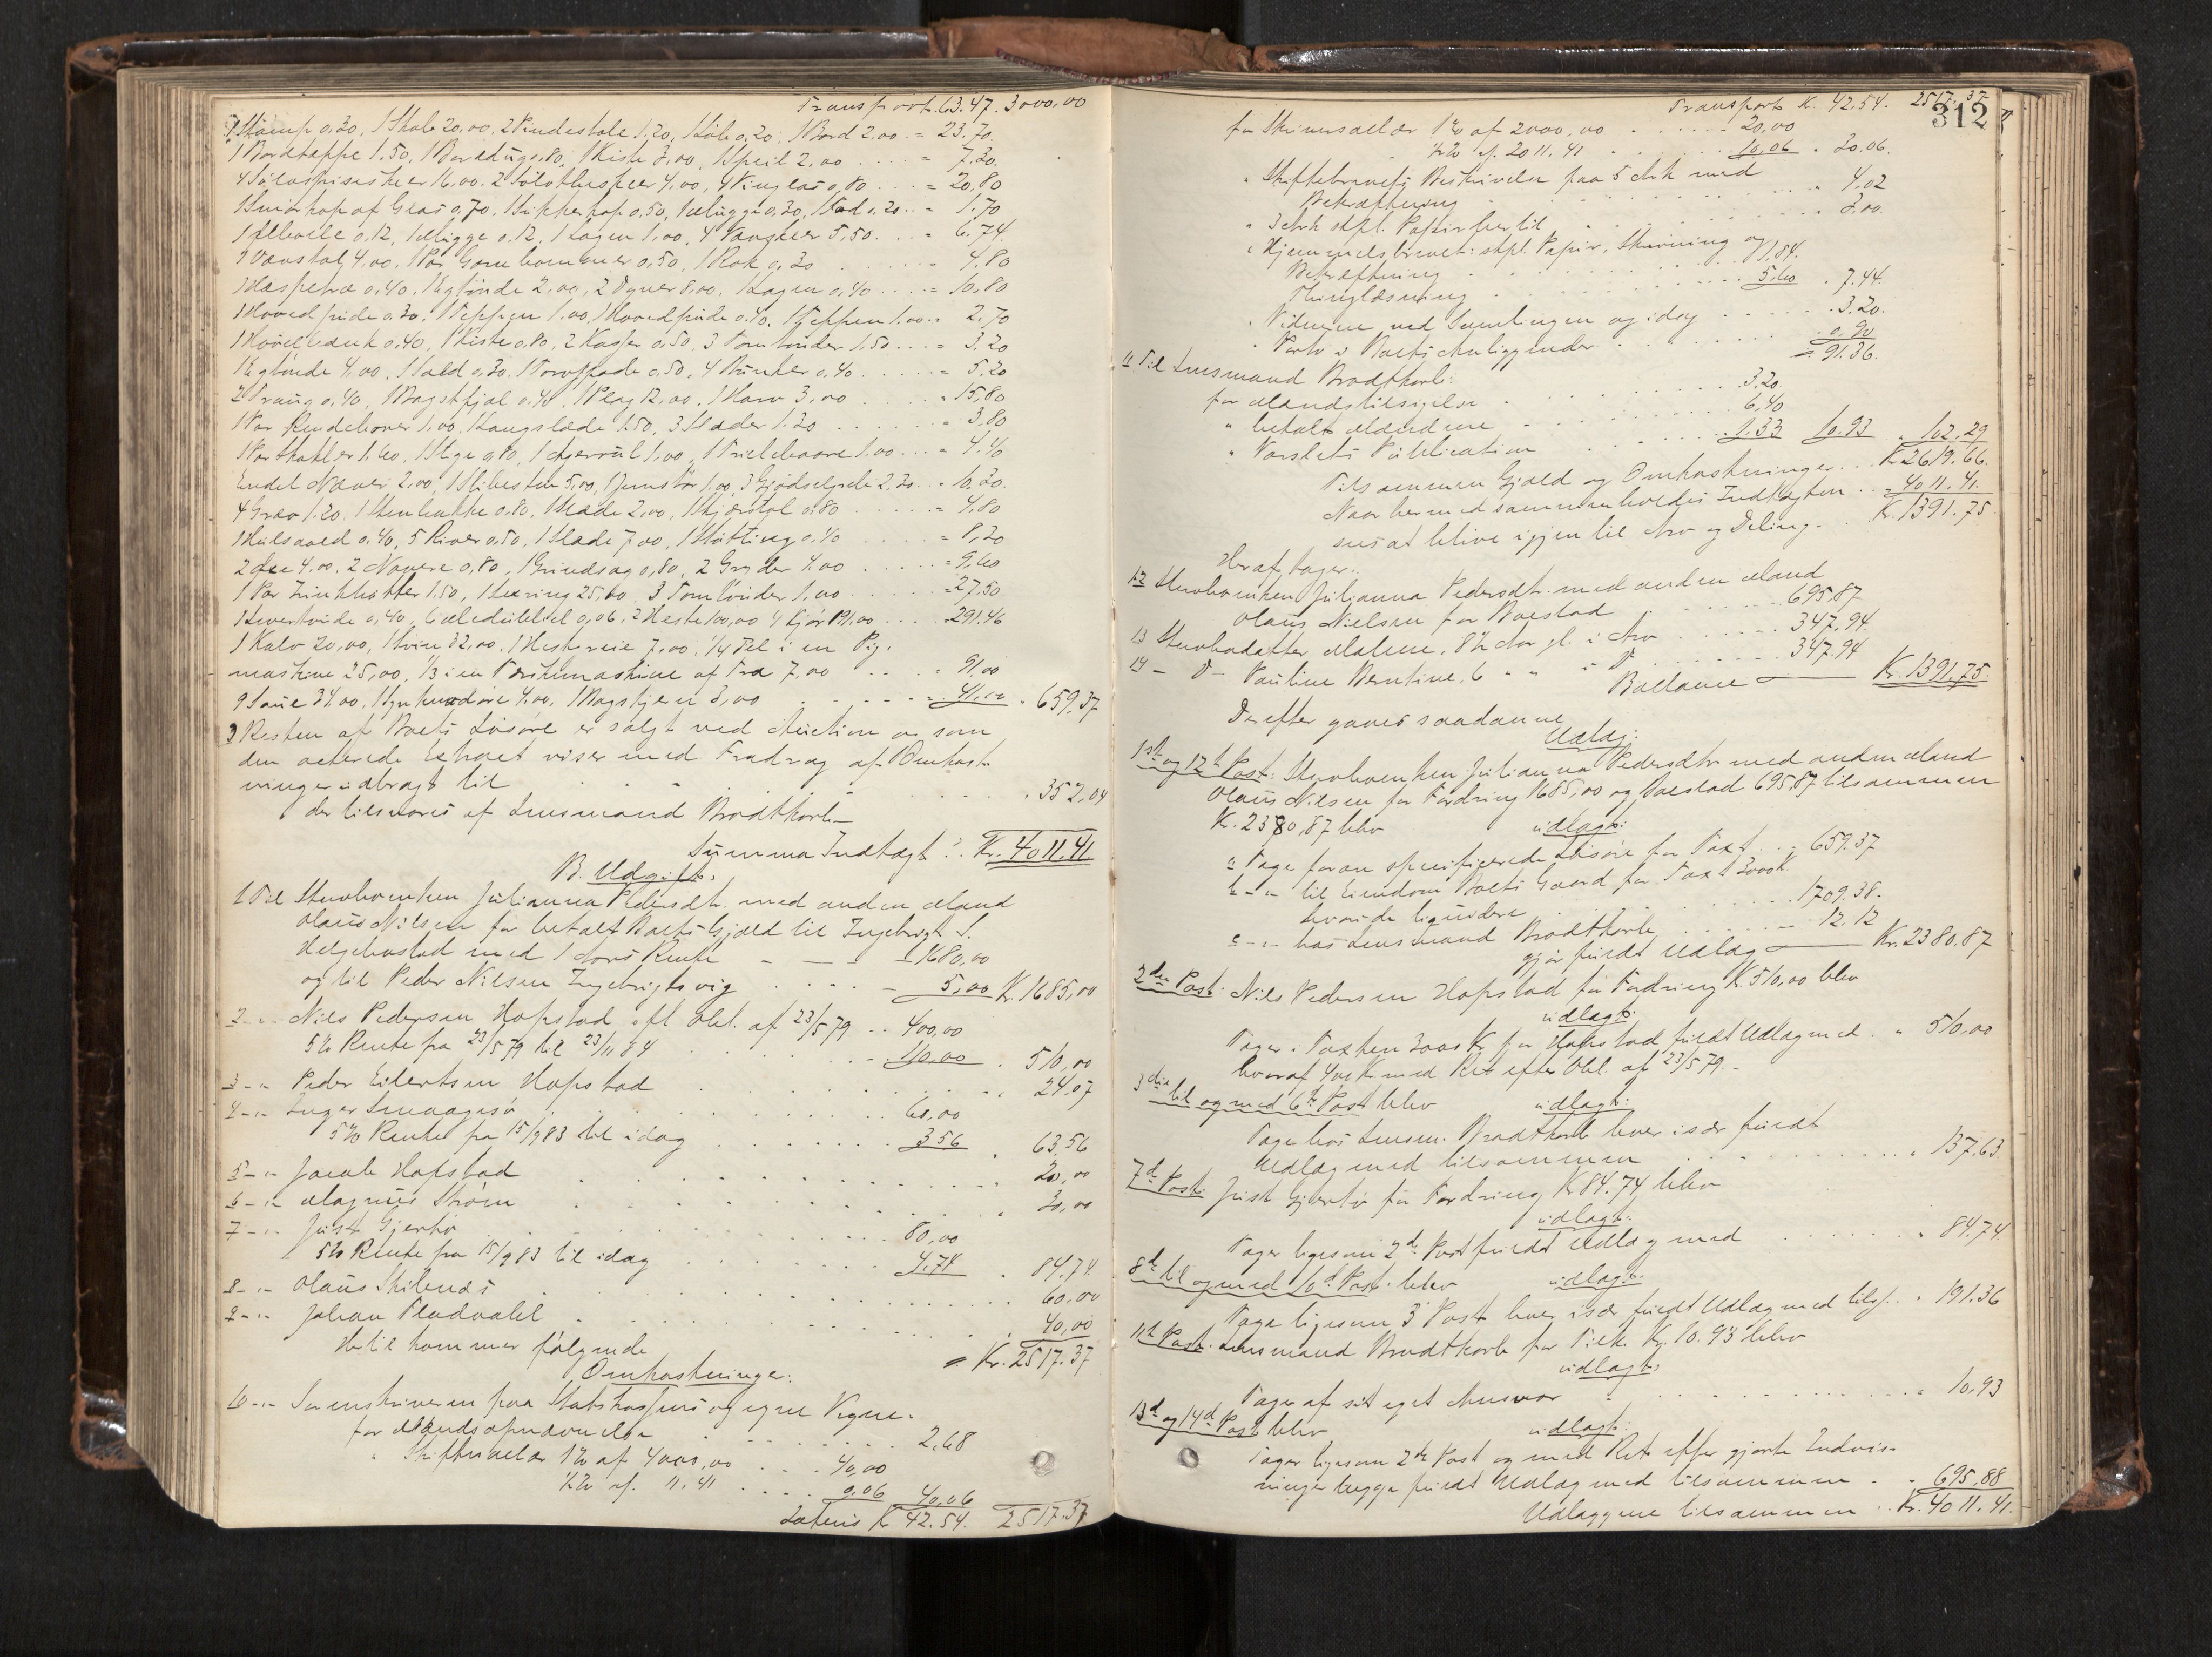 Transport 63.47. 3000,00
1 Stamp 0,30, 1 Skab 20,00, 2 Pindestole 1,20, 1 0,20, 1 Bord 2,00 = 23,70
1 Bordteppe 1.50, 1 Borddug 0,80, 1 Kiste 3,00, 1 Speil 2,00 .... = 7,30.
4 Sølvspiseskeer 16,00. 2 Sølvtheskeer 4,00, 4 0,80 ... = 20,80
1 Smørkop af Glas 0,70, 1 Sukkerkop 0,50, 1 Mugge 0,30, 1 Fad 0,20 .. = 1.70
1 0,12, 1 Mugge 0,12, 1 Lagen 1,00, 4 5,50 ... = 6.74
1 Vævstol 4,00, 1 Par 0,50, 1 Rok 0,30 ..... = 4,80
1 Haspetræ 0,40, 1 Øltønde 2,00, 2 Dyner 8,00, 1 Lagen 0,40 .... = 10,80
1 Hovedpude 0,30, 1 Teppen 1,00, 1 Hovedpude 0,40, 1 Teppen 1.00 .. = 2,70
1 Høvelbænk 0,40, 1 Kiste 0,80, 2 Kasser 0,50, 3 Tomtønder 1.50 ... = 3.20
1 Øltønde 4,00, 1 Sold 0,30, 1 Torvspade 0,50, 4 0,40 ..... = 5,20
2 Traug 0,40, 1 Bagstfjøl 0,40, 1 Plog 12,00, 1 Harv 3,00 ..... = 15,80
1 Par 1,00, 1 Langslæde 1.50, 3 Slæder 1.30 ...... = 3.80
1 Par Skakler 1.60, 1 Stige 0,80, 1 1,00, 1 Trillebaare 1,00 ... = 4.40
Endel Næver 2,00, 1 Slibesten 5,00, 1 Jernstør 1,00, 3 Gjødselgreb 2.30 .. = 10,30.
4 Græv 1.20, 1 Stenhakke 0,80, 1 Slæde 2,00, 1 0,80 ...... = 4,80
1 0,40, 5 River 0,50, 1 Slæde 7,00, 1 Støtting 0,40 ..... = 8,30
2 Øxe 4.00, 2 Navere 0,80, 1 Grindsag 0,80, 2 Gryder 4,00 ..... = 9,60
1 Par 1.50, 1 25,00, 3 Tomtønder 1,00 ..... = 27,50
1 0,40, 6 0,06, 2 Heste 100,00 4 Kjør 191,00 .... = 291.46
1 Kalv 20,00, 1 Svin 32,00, 1 7,00, 1/4 Del i en Rig.
maskine 25,00, 1/3 i en Tærskemaskine af Træ 7,00 .... = 91,00
9 Saue 34.00, 4,00, 3,00 ..... = 41,00 . 659.37
3 Resten af Boets Løsøre er solgt ved Auction og som
den acterede Extract viser med Fradrag af Omkost-
ninger udbragt til ....... 352,04
der tilsvares af Lensmand Brodtkorb.
Summa Indtægt: Kr. 4011.41.
B. Udgift.
1 Til Stervboenken Julianna Pedersdtr. med anden Mand
Olaus Nilsen for betalt Boets Gjæld til Ingebrigt S.
Helgebostad med 1 Aars Rente - - - 1680,00
og til Peder Nilsen Ingebrigtsvig .... 5,00 Kr. 1685,00
2 - " - Niels Pedersen Hopstad eft. Obl. af 23/5 79 .. 400,00
5% Rente fra 23/5 79 til 23/11 84 ..... 110.00 . 510,00
3 - " Peder Eilertsen Hopstad ....... 24,07
4 - " Inger Smaagesø ...... 60,00
5% Rente fra 15/9 83 til idag ...... 3.56 . 63,56
5 - " Jacob Hopstad ........ 20,00
6 - " Magnus Strøm ........ 30,00
7 - " Just Gjertø ....... 80,00
5% Rente fra 15/9 83 til idag ...... 4.74 . 84,74
8 - " Olaus Skilnæs ........ 60,00
9 - " Johan Fladvahl ........ 40,00
Hertil kommer følgende = Kr. 2517.37
Omkostninger:
10 - " Sorenskriveren paa Statskassens og egne Vegne.
for Mændsopnævnelse ....... 2.48
" Skiftesalær 1% af 4000,00 .... 40,00
1/2% af 11.41 .... 0,06 40,06
Lateris K 42.54. 2517.37
312
Transport K. 42.54. 2517.37
for Skriversalær 1% af 2000,00 ..... 20,00
1/2% af 2011.41 ..... 10,06 . 30,06.
" Skiftebrevets Beskrivelse paa 5 Ark med
Bekræftning ....... 4,02
" 3 Ark stpl. Papir hertil ....... 3,00.
" Hjemmelsbrevet: stpl. Papir, Skrivning og
Bekræftning ....... 1,84.
Thinglæsning ...... 5.60 . 7.44.
" Vidnerne ved Samlingen og idag ..... 3.20.
" Porto i Boets Anliggender ...... 0,90
= 91.36.
11 Til Lensmand Brodtkorb:
for Mændstilsigelse ...... 3.20.
" betalt Mændene ...... 6,40
" Varslets Publication ...... 1.33 10.93 . 102.29
Tilsammen Gjæld og Omkostninger ... Kr. 2619.66.
Naar hermed sammenholdes Indtægten .. " 4011.41.
sees at blive igjen til Arv og Deling. Kr. 1391.75.
Heraf tager:
12 Stervboenken Julianna Pedersdtr. med anden Mand
Olaus Nielsen for Boeslod ..... 695,87
13 Stervbodatter Malene, 8 1/2 Aar gl. i Arv ..... 347.94.
14 - D - Pauline Berntine, 6 " " " D ..... 347.94
Ballance — Kr. 1391.75.
Derefter gaves saadanne
Udlæg:
1st og 12te Post: Stervboenken Julianna Pedersdtr med anden Mand
Olaus Nilsen for Fordring 1685,00 og Boeslod 695,87 tilsammen
Kr. 2380,87 blev udlagt:
a Tager foran specificerede Løsøre for Taxt .. 659.37
b - " til Eiendom Boets Gaard for Taxt 3000 K.
hvori de liquidere ....... 1709.38.
c - " - hos Lensmand Brodtkorb ..... 12.12
gjør fuldt Udlæg — Kr. 2380.87
2den Post. Nils Pedersen Hopstad for Fordring K. 510,00 blev
udlagt:
Tager i Taxten 3000 Kr for Hopstad fuldt Udlæg med . " 510,00
hvoraf 400 K. med Ret efter Obl. af 23/5 79. -
3die til og med 6te Post blev udlagt:
Tage hos Lensm. Brodtkorb hver især fuldt
Udlæg med tilsammen ........ 137.63
7d Post. Just Gjertø for Fordring K 84.74 blev
udlagt:
Tager ligesom 2d Post fuldt Udlæg med ..... " 84.74
8d til og med 10d Post. blev udlagt:
Tage ligesom 3 Post hver især fuldt Udlæg med tils. . 191.36
11te Post. Lensmand Brodtkorb for Tilk. Kr. 10.93 blev
udlagt:
Tager af sit eget Ansvar ....... " 10.93
13d og 14d Post blev udlagt:
Tager ligesom 2de Post og med Ret efter gjorte Indvis-
ninger begge fuldt Udlæg med tilsammen . . " 695,88
Udlæggene tilsammen .. Kr. 4011.41.